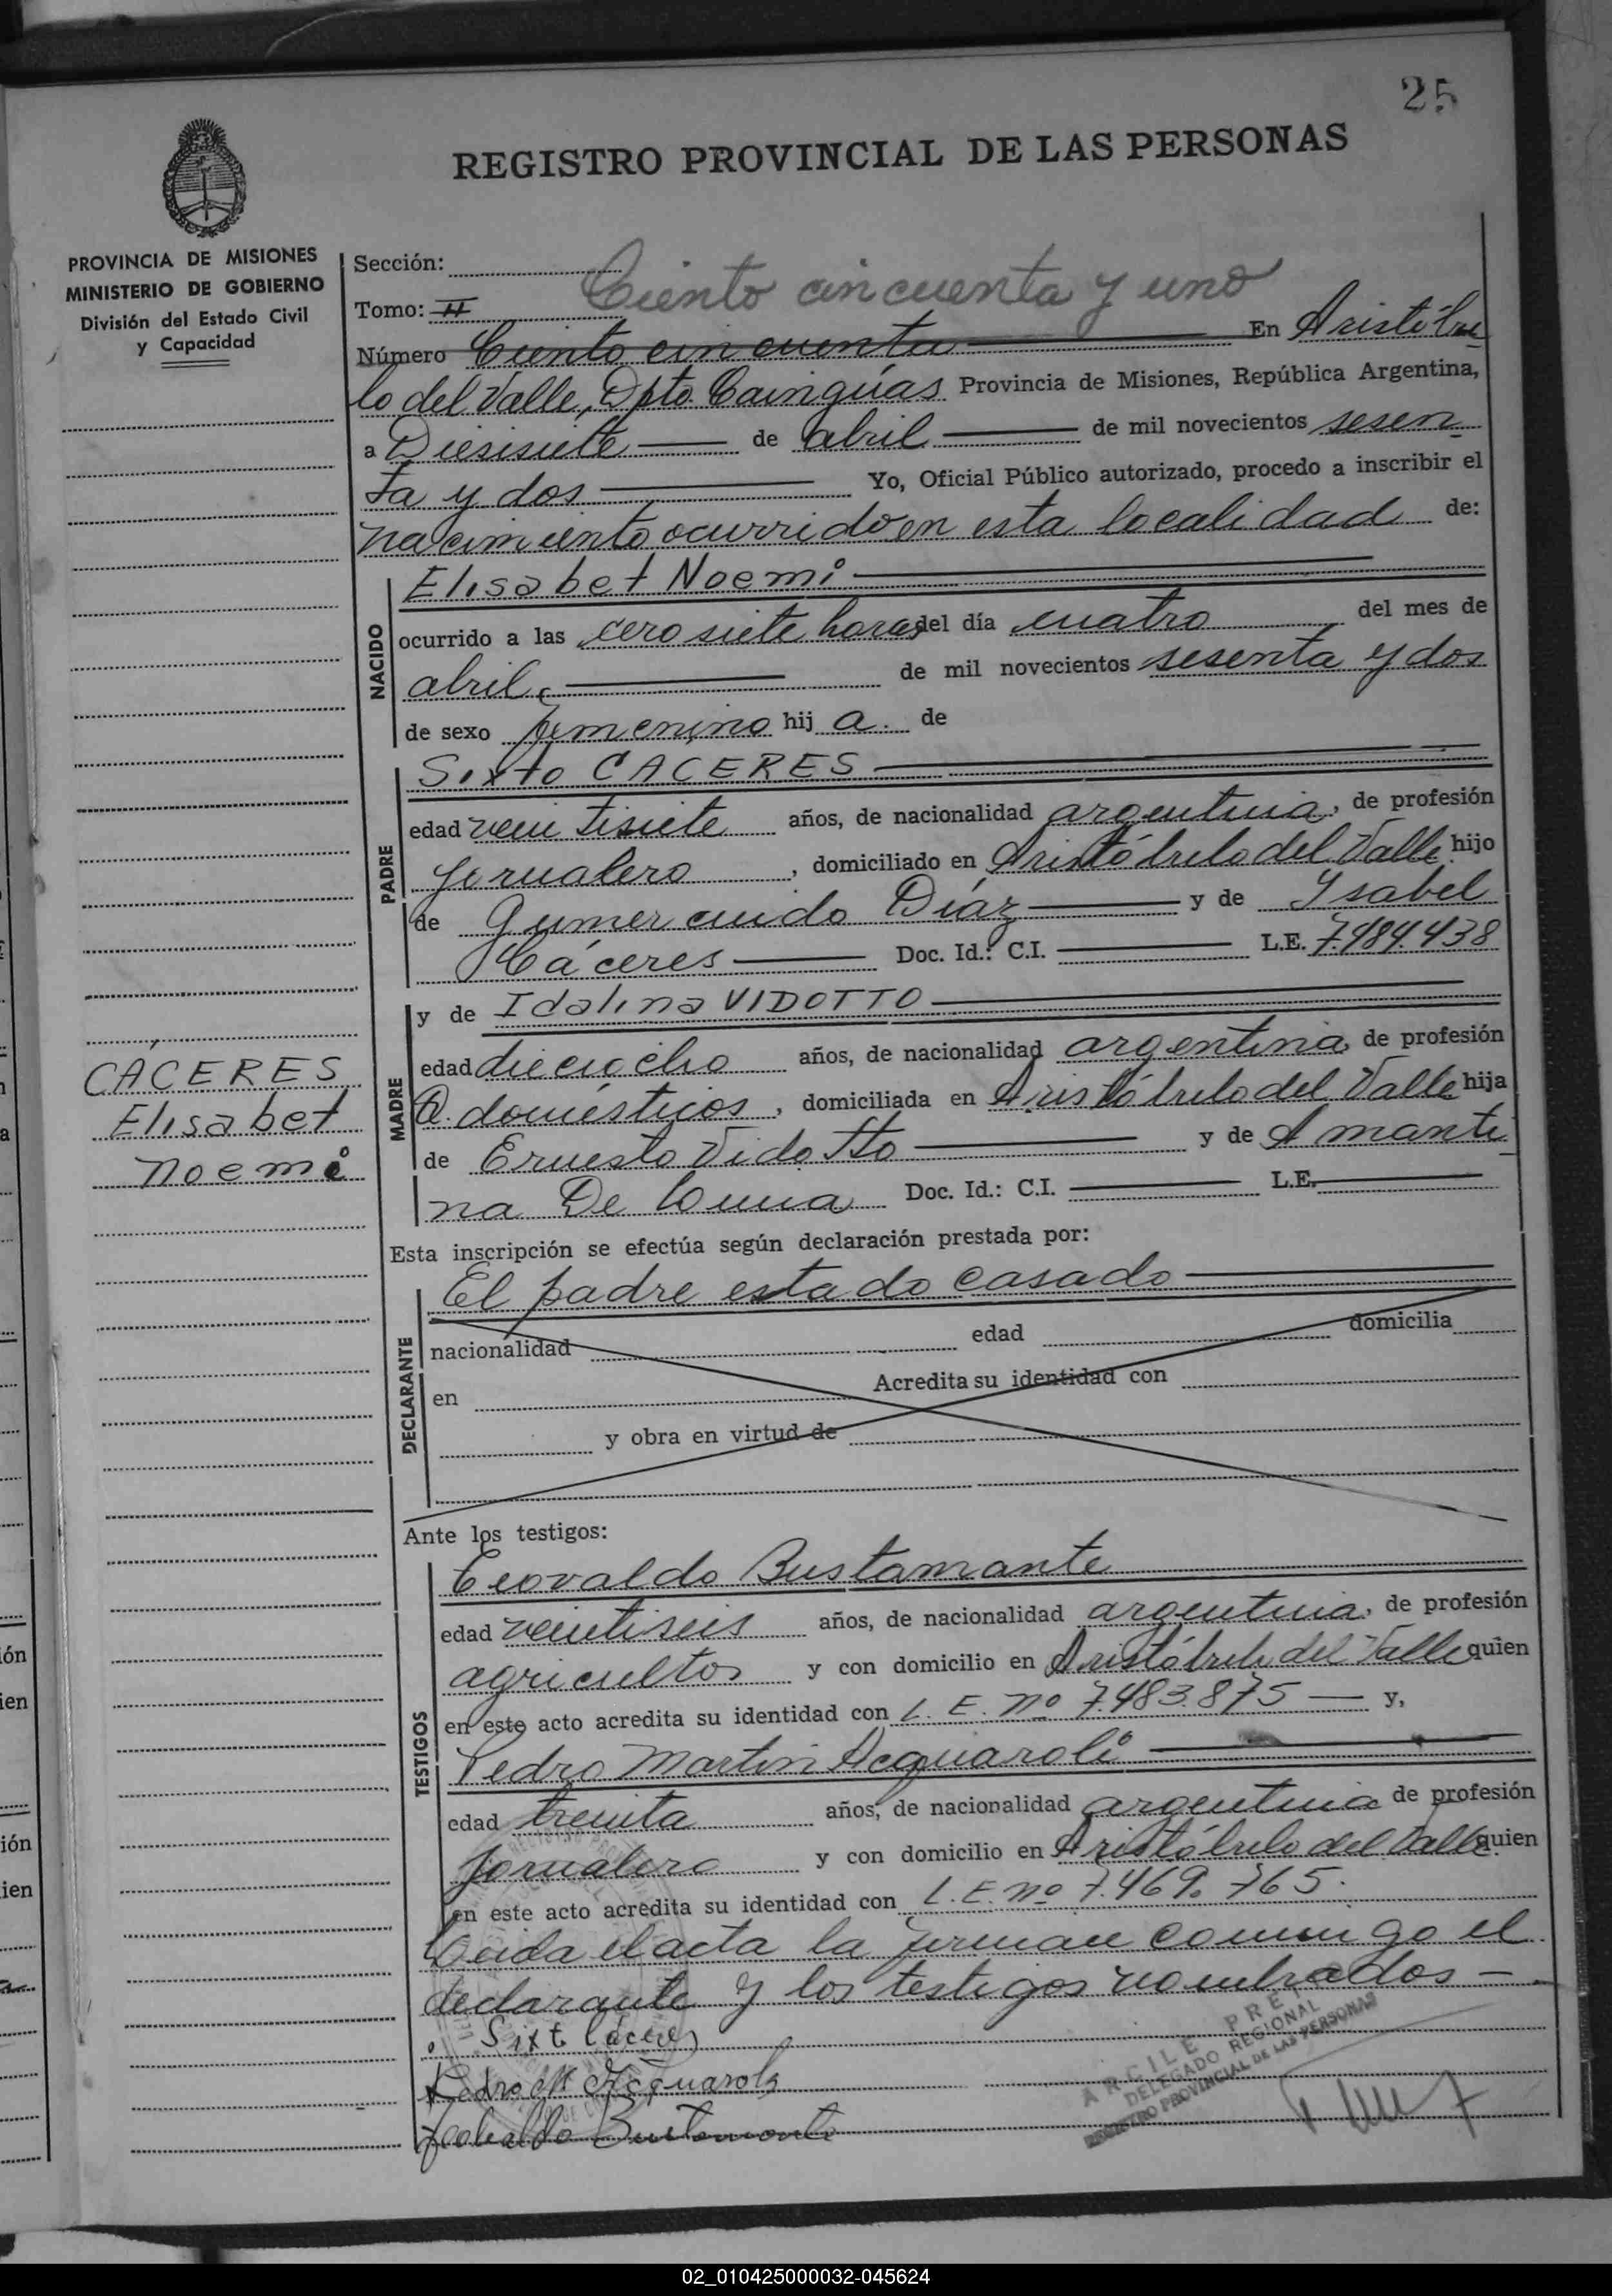 25
REGISTRO PROVINCIAL DE LAS PERSONAS
PROVINCIA DE MISIONES
MINISTERIO DE GOBIERNO
División del Estado Civil
y Capacidad
Sección:
Tomo: II
Ciento cincuenta y uno
Número Ciento cincuenta En Aristóbu
lo del Valle, Dpto. Cainguas Provincia de Misiones, República Argentina,
a Diesisiete de abril de mil novecientos sesen
ta y dos Yo, Oficial Público autorizado, procedo a inscribir el
nacimiento ocurrido en esta localidad de:
NACIDO
Elisabet Noemi
ocurrido a las cero siete horas del día cuatro del mes de
abril de mil novecientos sesenta y dos
de sexo femenino hij a. de
PADRE
Sixto CACERES
edad veintisiete años, de nacionalidad argentina, de profesión
jornalero, domiciliado en Aristóbulo del Valle hijo
de Gumercindo Díaz y de Ysabel
Cáceres Doc. Id.: C.I. L.E. 7.484.438
MADRE
y de Idalina VIDOTTO
edad dieciocho años, de nacionalidad argentina, de profesión
Q. domésticos, domiciliada en Aristóbulo del Valle hija
de Ernesto Vidotto y de Amanti
na De Doc. Id.: C.I. L.E.
CÁCERES
Elisabet
Noemi
Esta inscripción se efectúa según declaración prestada por:
DECLARANTE
El padre estado casado
nacionalidad edad domicilia
en Acredita su identidad con
y obra en virtud de
Ante los testigos:
TESTIGOS
Teovaldo Bustamante
edad veintiseis años, de nacionalidad argentina, de profesión
agricultor y con domicilio en Aristóbulo del Valle quien
en este acto acredita su identidad con L. E. nº 7.483.875 y,
Pedro Martin Acquaroli
edad treinta años, de nacionalidad argentina de profesión
jornalero y con domicilio en Aristóbulo del Valle quien
en este acto acredita su identidad con L.E. nº 7.469.765.
Leida el acta la firman conmigo el
declarante y los testigos nombrados
Sixto Cáceres
Pedro M Acquaroli
Teobaldo Bustamante
ARCILE PREI
DELEGADO REGIONAL
REGISTRO PROVINCIAL DE LAS PERSONAS
02_010425000032-045624